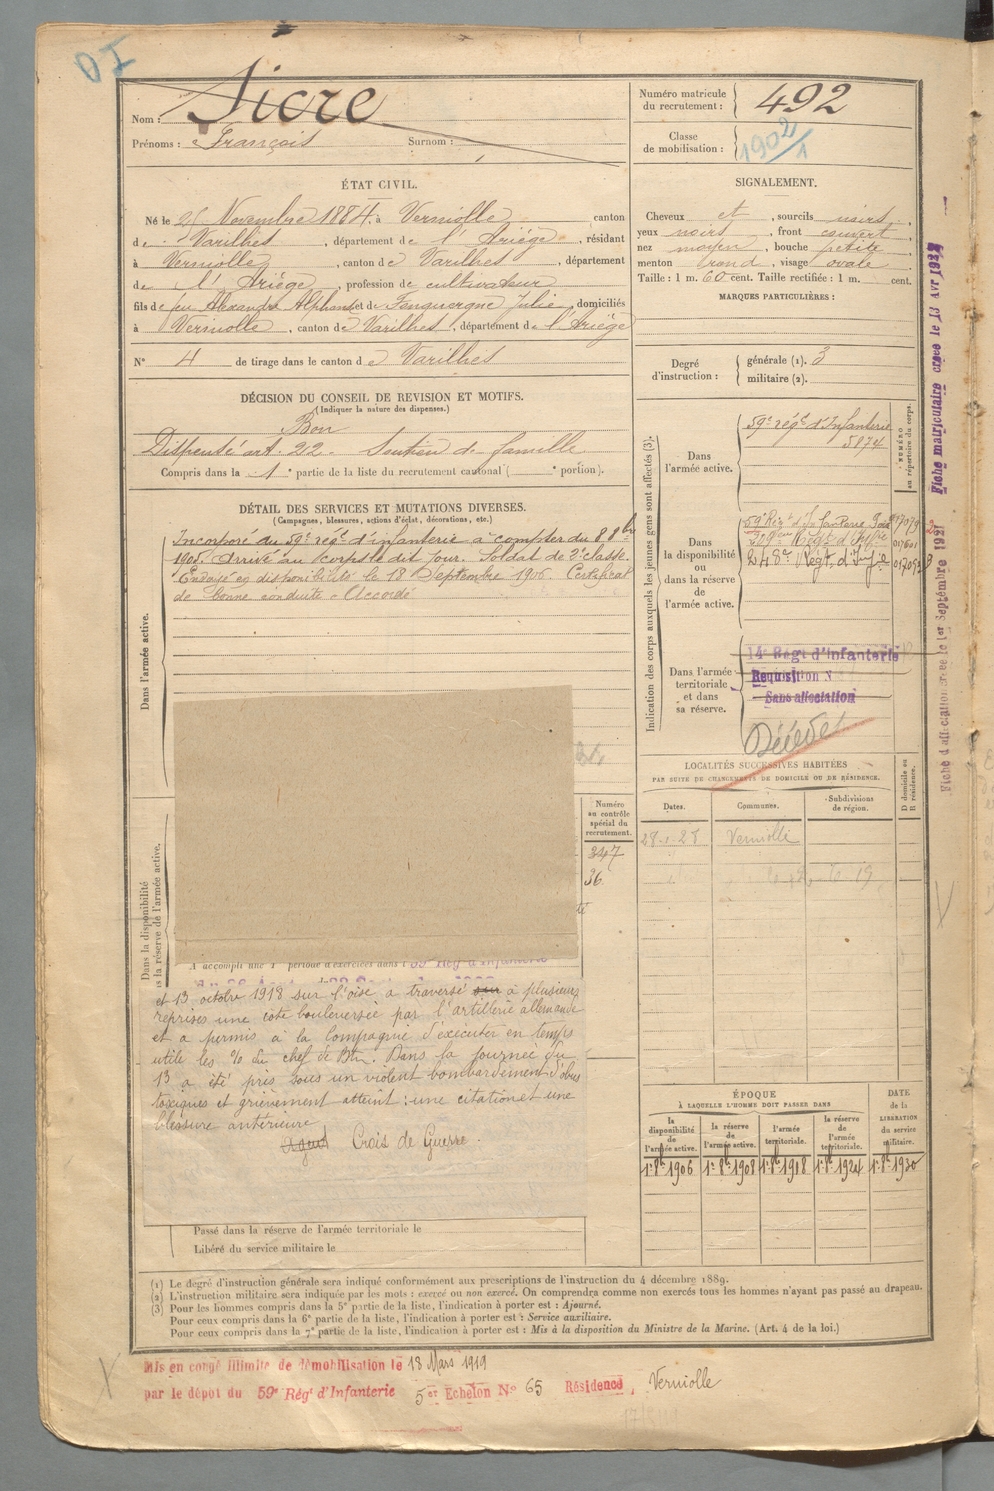 DI
Nom : Sicre
Prénoms : François Surnom :
Numéro matricule du recrutement : 492
Classe de mobilisation : 1902/1
ÉTAT CIVIL.
Né le 25 Novembre 1884, à Verniolle, canton
de Varilhes, département de l'Ariège, résidant
à Verniolle, canton de Varilhes, département
de l'Ariège, profession de cultivateur
fils de feu Alexandre Alphonse et de Fonquergne Julie, domiciliés
à Verniolle, canton de Varilhes, département de l'Ariège
N° 4 de tirage dans le canton de Varilhes
SIGNALEMENT.
Cheveux et, sourcils noirs,
yeux noirs, front couvert
nez moyen, bouche petite
menton rond, visage ovale
Taille : 1 m. 60 cent. Taille rectifiée : 1 m. cent.
MARQUES PARTICULIÈRES :
Degré d'instruction : générale (1). 3
militaire (2).
DÉCISION DU CONSEIL DE REVISION ET MOTIFS.
(Indiquer la nature des dispenses.)
Bon
Dispensé art. 22. Soutien de famille
Compris dans la 1e partie de la liste du recrutement cantonal ( e portion).
DÉTAIL DES SERVICES ET MUTATIONS DIVERSES.
(Campagnes, blessures, actions d'éclat, décorations, etc.)
Dans l'armée active.
Incorporé au 59e rég.t d'infanterie à compter du 8 8bre
1905. Arrivé au corps le dit jour. Soldat de 2e classe.
Envoyé en disponibilité le 18 Septembre 1906. Certificat
de bonne conduite "Accordé
Indication des corps auxquels les jeunes gens sont affectés (3).
NUMÉRO au répertoire du corps.
Dans l'armée active.
59e rég.t d'Infanterie
5874
Dans la disponibilité ou dans la réserve de l'armée active.
59e Rég.t d'Infanterie
209e Rég.t d'Inf.ie
248e Rég.t d'Inf.ie
Dans l'armée territoriale et dans sa réserve.
14e Rég.t d'Infanterie
Requisition N
Sans affectation
Décédé
Fiche matriculaire créée le 13 Avr 1932
Fiche d'affectation créée le 1er Septembre 1921
LOCALITÉS SUCCESSIVES HABITÉES
PAR SUITE DE CHANGEMENTS DE DOMICILE OU DE RÉSIDENCE.
Dates. Communes. Subdivisions de région. D domicile ou R résidence.
28-1-28 Verniolle
Dans la disponibilité
dans la réserve de l'armée active.
Numéro au contrôle spécial du recrutement.
347
36
A accompli une 1e période d'exercices dans l 59e Rég d'Infanterie
et 13 octobre 1918 sur l'Oise a traversé sur à plusieurs
reprises une côte bouleversée par l'artillerie allemande
et a permis à la Compagnie d'exécuter en temps
utile les % du chef de Btn. Dans la journée du
13 a été pris sous un violent bombardement d'obus
toxiques et grièvement atteint : une citation et une
blessure antérieure
Croix de Guerre.
ÉPOQUE
À LAQUELLE L'HOMME DOIT PASSER DANS
la disponibilité de l'armée active. la réserve de l'armée active. l'armée territoriale. la réserve de l'armée territoriale. DATE de la LIBÉRATION du service militaire.
1er 8bre 1906 1er 8bre 1908 1er 8bre 1918 1er 8bre 1924 1er 8bre 1930
Passé dans la réserve de l'armée territoriale le
Libéré du service militaire le
(1) Le degré d'instruction générale sera indiqué conformément aux prescriptions de l'instruction du 4 décembre 1889.
(2) L'instruction militaire sera indiquée par les mots : exercé ou non exercé. On comprendra comme non exercés tous les hommes n'ayant pas passé au drapeau.
(3) Pour les hommes compris dans la 5e partie de la liste, l'indication à porter est : Ajourné.
Pour ceux compris dans la 6e partie de la liste, l'indication à porter est : Service auxiliaire.
Pour ceux compris dans la 7e partie de la liste, l'indication à porter est : Mis à la disposition du Ministre de la Marine. (Art. 4 de la loi.)
Mis en congé illimité de démobilisation le 18 Mars 1919
par le dépôt du 59e Rég.t d'Infanterie 5e Echelon N° 65 Résidence, Verniolle